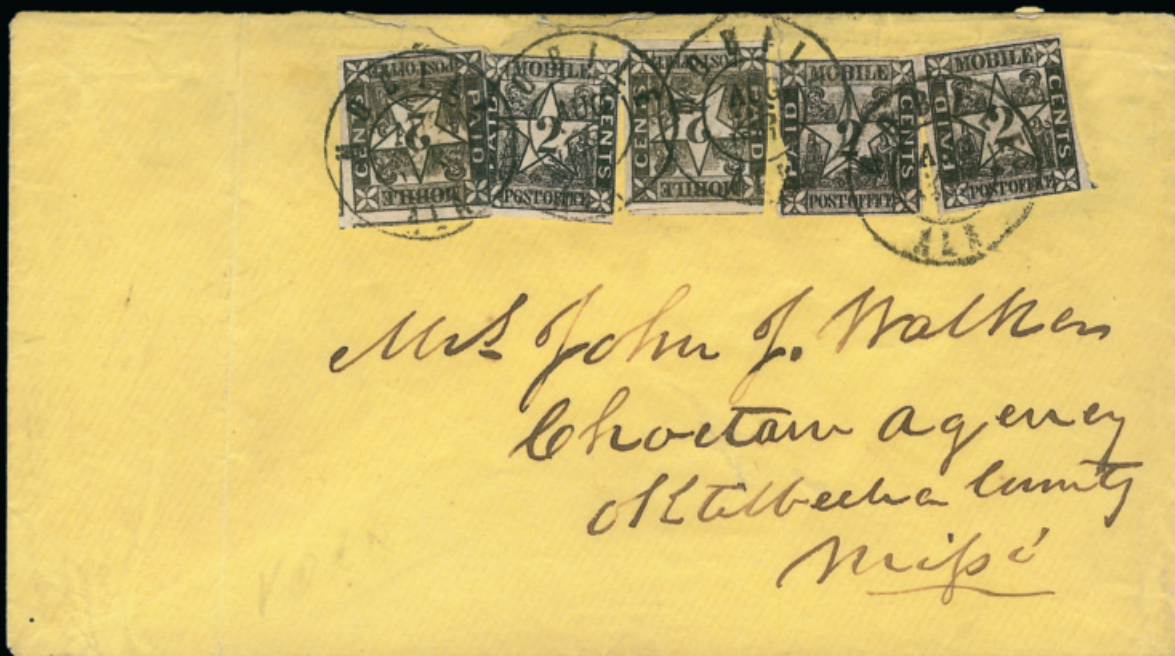 MOBILE
PAID 2 CENTS
POST OFFICE
MOBILE
PAID 2 CENTS
POST OFFICE
MOBILE
PAID 2 CENTS
POST OFFICE
MOBILE
PAID 2 CENTS
POST OFFICE
MOBILE
PAID 2 CENTS
POST OFFICE
MOBILE
AUG
ALA
Mrs John J. Walker
Choctaw Agency
Oktibbeha County
Missi